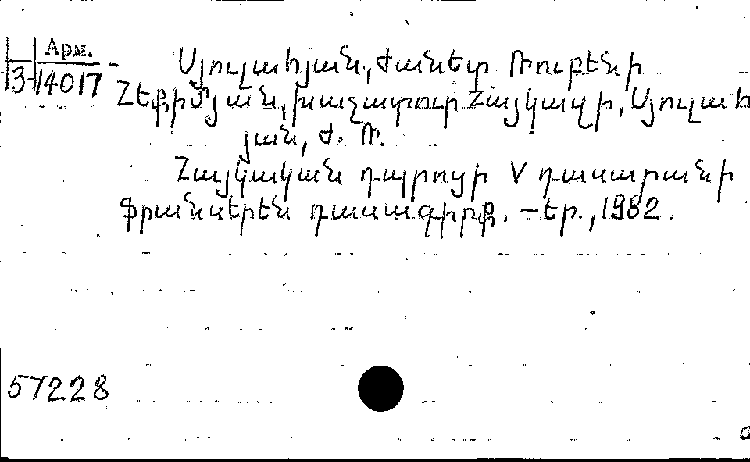 Арм.
3-14017
Սյուլահյան, Ժանետ Ռուբենի
Հեքիմյան, Խաչատուր Հայկազի, Սյուլահ
յան, Ժ. Ռ.
Հայկական դպրոցի V դասարանի
ֆրանսերեն դասագիրք. – Եր., 1982.
57228